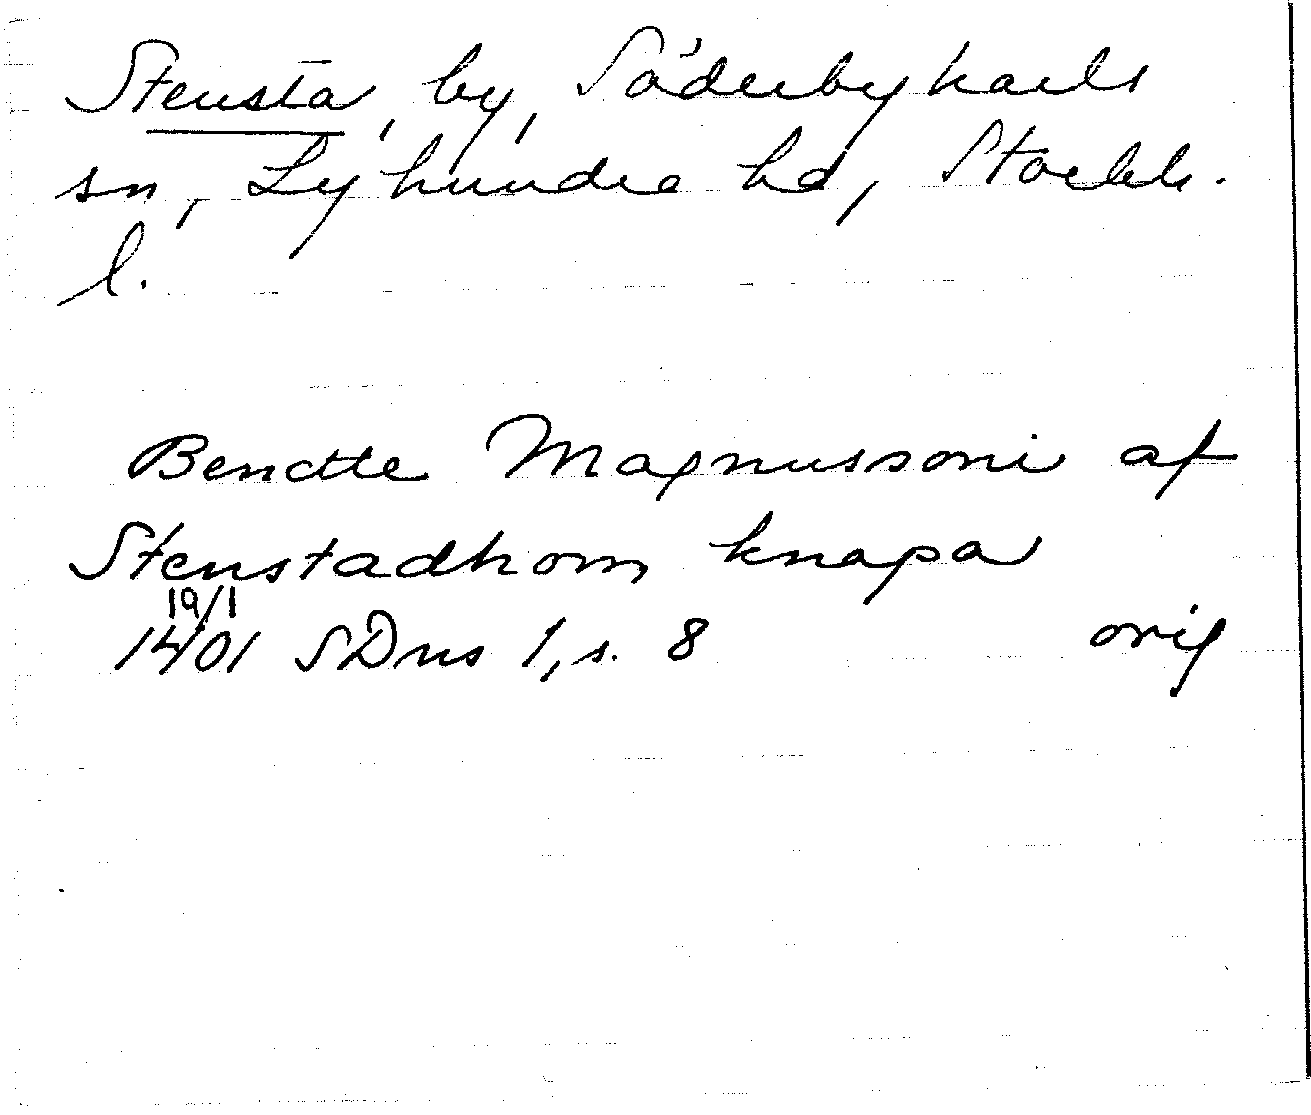 Stensta, by, Söderbykarls
sn, Lyhundra hd, Stockh.
l.
Bendtte Magnussoni af
Stenstadhom knapa
19/1
1401 SDns 1, s. 8 orig